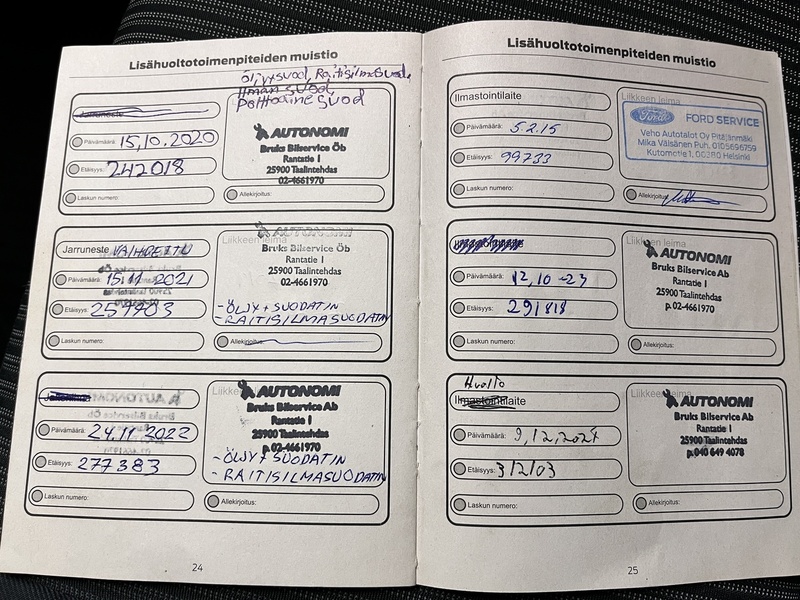 Lisähuoltotoimenpiteiden muistio
Öljy+suod, Raitisilmasuod,
Ilman suod,
Polttoaine suod
Jarruneste
Päivämäärä: 15,10.2020
Etäisyys: 242018
Laskun numero:
AUTONOMI
Bruks Bilservice Öb
Rantatie 1
25900 Taalintehdas
02-4661970
Allekirjoitus:
Jarruneste VAIHDETTU
Päivämäärä: 15.11 2021
Etäisyys: 259403
Laskun numero:
Liikkeen leima
Bruks Bilservice Öb
Rantatie 1
25900 Taalintehdas
02-4661970
-ÖLJY + SUODATIN
-RAITISILMASUODATIN
Allekirjoitus:
Päivämäärä: 24.11 2022
Etäisyys: 277383
Laskun numero:
Liikkeen leima
AUTONOMI
Bruks Bilservice Ab
Rantatie 1
25900 Taalintehdas
p. 02-4661970
-ÖLJY + SUODATIN
-RAITISILMASUODATIN
Allekirjoitus:
24
Lisähuoltotoimenpiteiden muistio
Ilmastointilaite
Päivämäärä: 5.2.15
Etäisyys: 99733
Laskun numero:
Liikkeen leima
Ford FORD SERVICE
Veho Autotalot Oy Pitäjänmäki
Mika Väisänen Puh. 0105696759
Kutomotie 1, 00380 Helsinki
Allekirjoitus:
Päivämäärä: 12,10-23
Etäisyys: 291818
Laskun numero:
Liikkeen leima
AUTONOMI
Bruks Bilservice Ab
Rantatie 1
25900 Taalintehdas
p. 02-4661970
Allekirjoitus:
Huolto
Ilmastointilaite
Päivämäärä: 9,12,2024
Etäisyys: 312103
Laskun numero:
Liikkeen leima
AUTONOMI
Bruks Bilservice Ab
Rantatie 1
25900 Taalintehdas
p. 040 649 4078
Allekirjoitus:
25